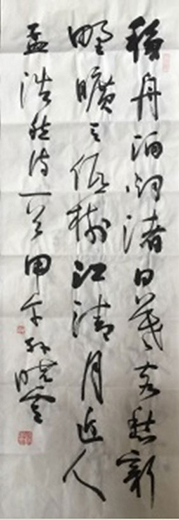 移舟泊烟渚日暮客愁新
野曠天低树江清月近人
孟浩然诗一首甲午孙晓云